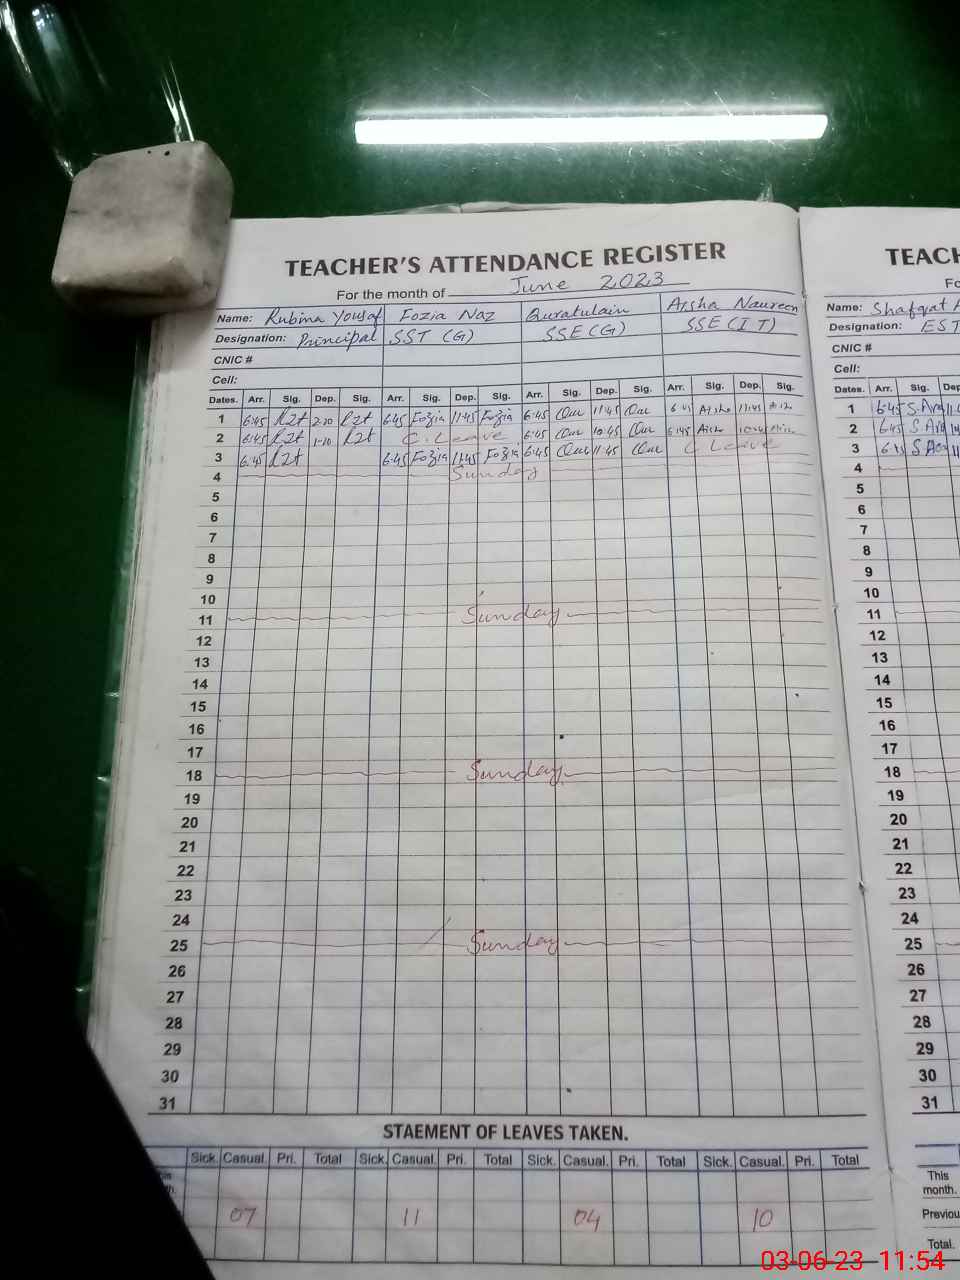 TEACHER'S ATTENDANCE REGISTER
For the month of June 2023
Name: Rubina Yousaf Fozia Naz Quratulain Aisha Naureen
Designation: Principal SST (G) SSE (G) SSE (IT)
CNIC #
Cell:
Dates. Arr. Sig. Dep. Sig. Arr. Sig. Dep. Sig. Arr. Sig. Dep. Sig. Arr. Sig. Dep. Sig.
1 6:45 2:20 6:45 Fozia 11:45 Fozia 6:45 11:45 6:45 Aisha 11:45
2 6:45 1:10 C. Leave 6:45 10:45 6:45
3 6:45 6:45 Fozia 11:45 Fozia 6:45 11:45 C Leave
4 Sunday
5
6
7
8
9
10
11 Sunday
12
13
14
15
16
17
18 Sunday
19
20
21
22
23
24
25 Sunday
26
27
28
29
30
31
STAEMENT OF LEAVES TAKEN.
Sick. Casual. Pri. Total Sick. Casual. Pri. Total Sick. Casual. Pri. Total Sick. Casual. Pri. Total
07 11 04 10
TEACH
Fo
Name: Shafqat
Designation: EST
CNIC #
Cell:
Dates. Arr. Sig. Dep
1 6:45
2 6:45
3 6:45
4
5
6
7
8
9
10
11
12
13
14
15
16
17
18
19
20
21
22
23
24
25
26
27
28
29
30
31
This
month.
Previou
Total.
03-06-23 11:54